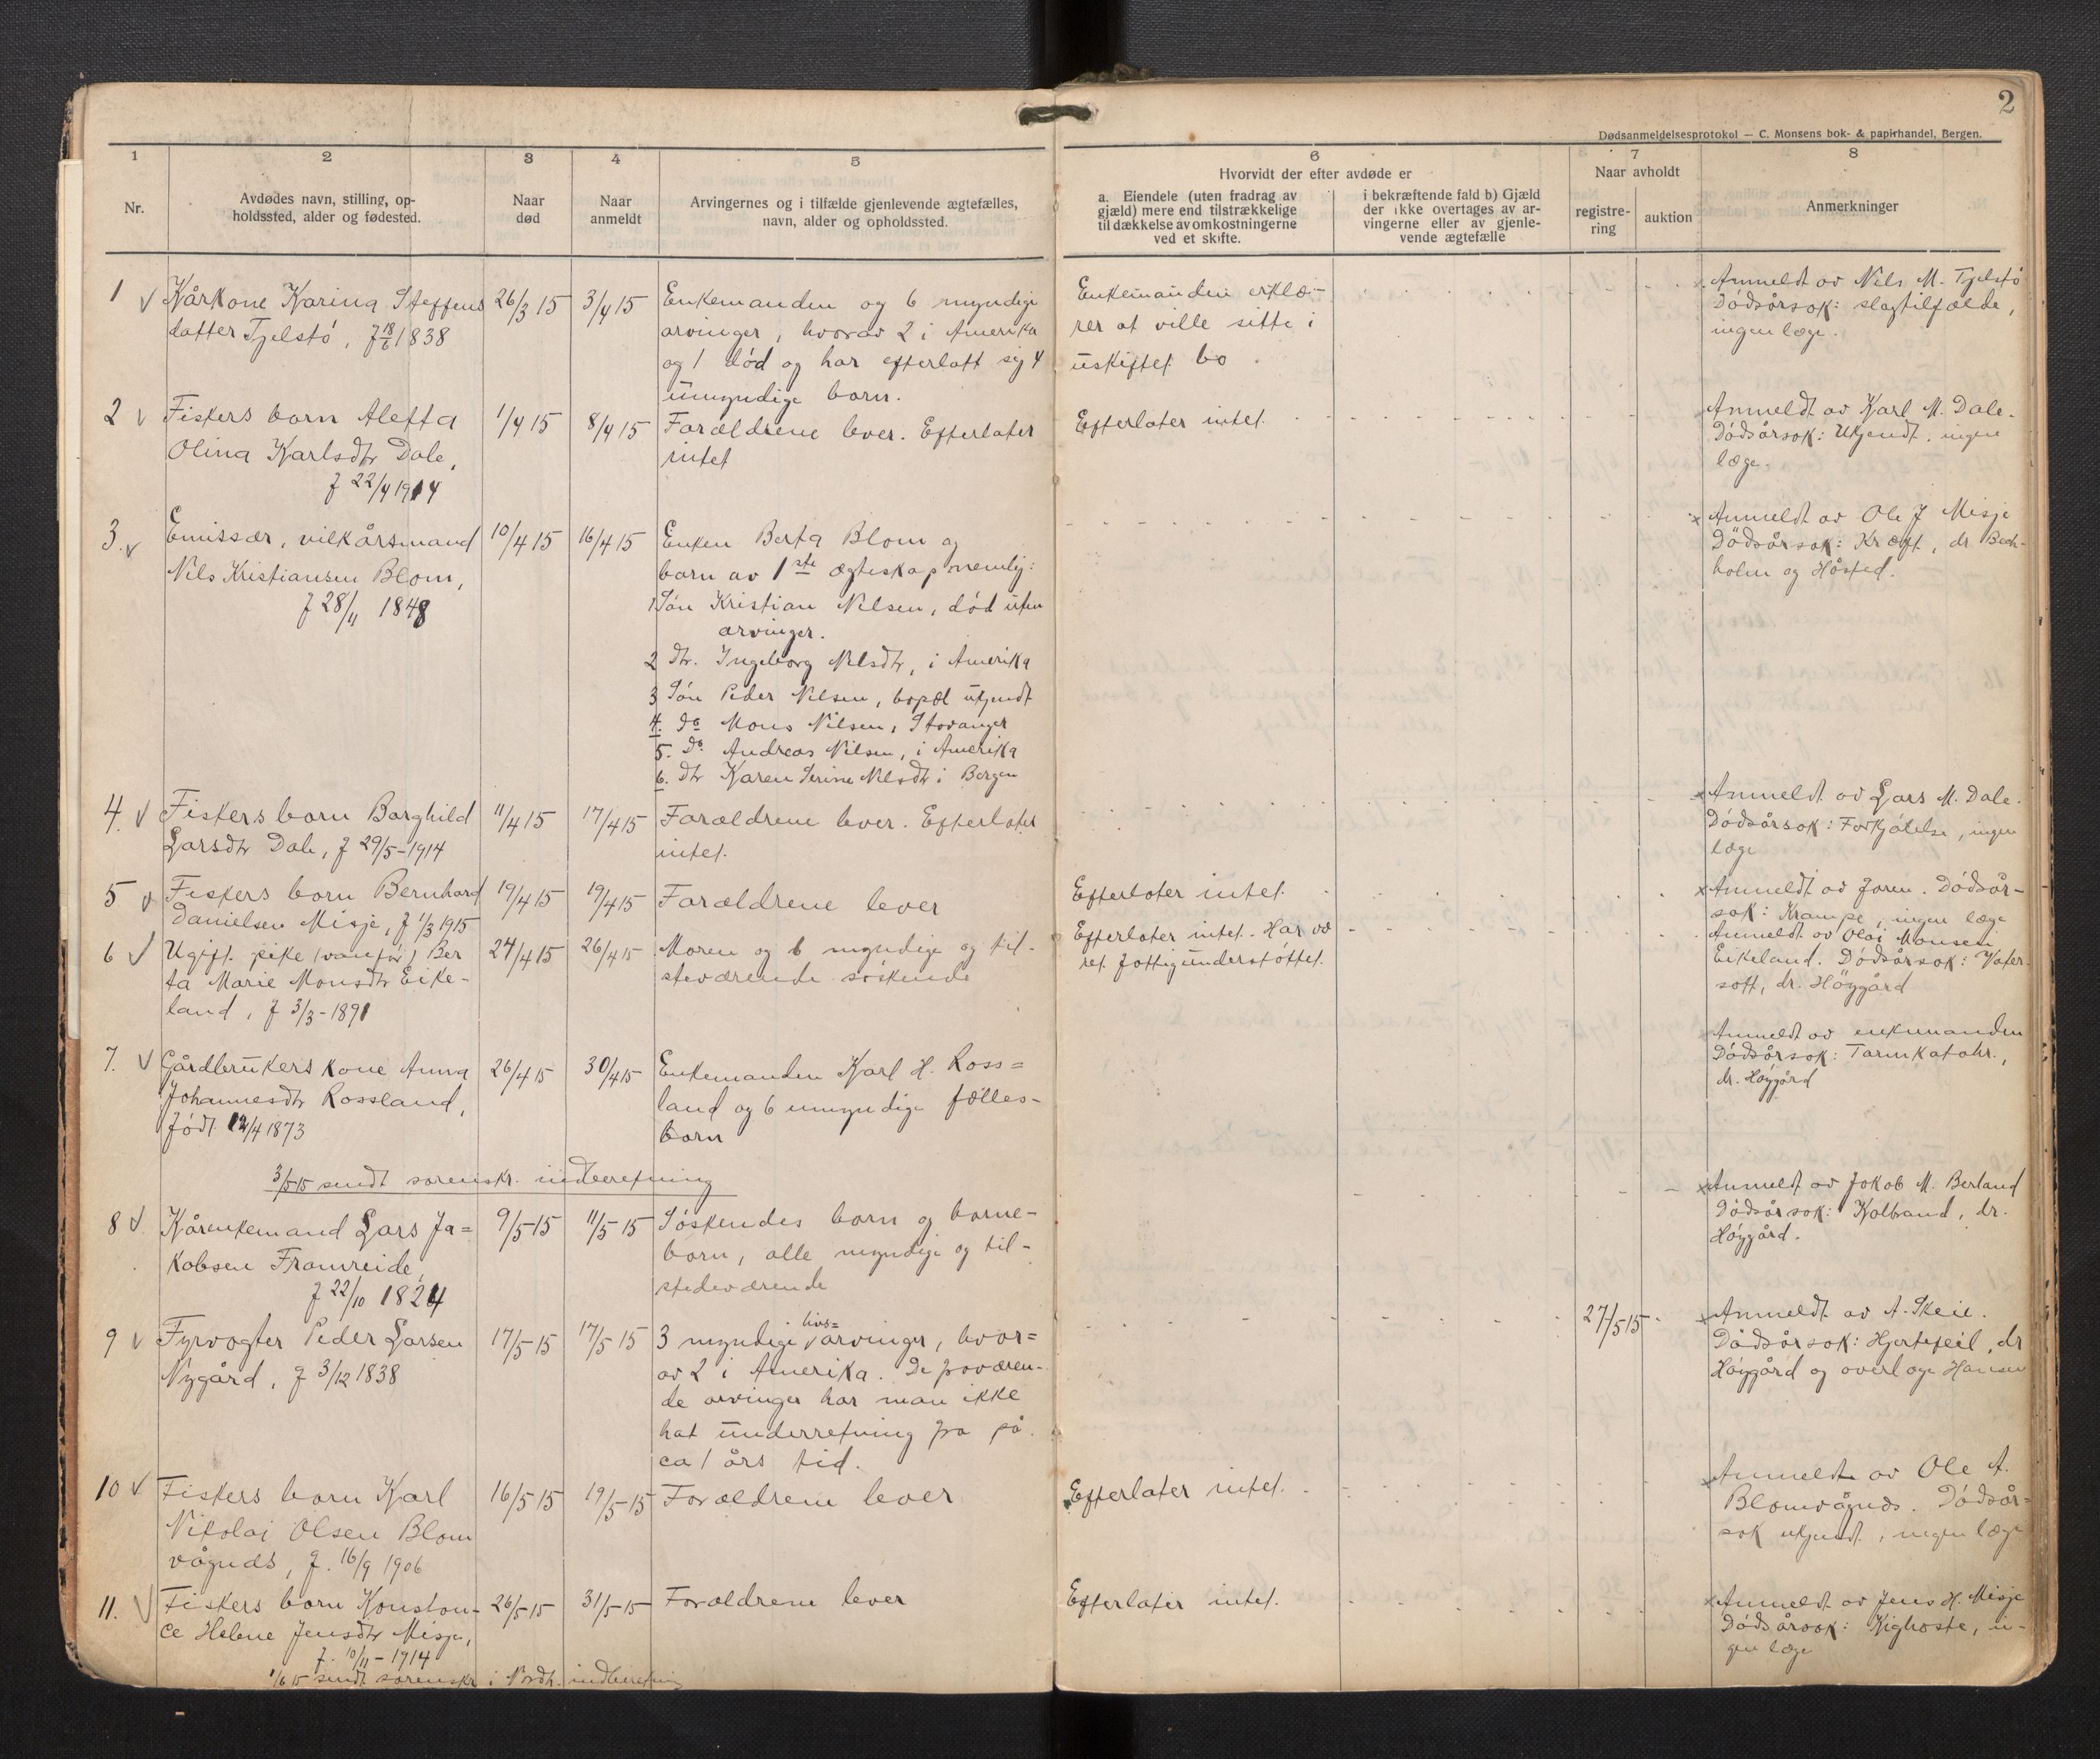 2
Dødsanmeldelsesprotokol — C. Monsens bok- & papirhandel, Bergen.
1 2 3 4 5 6 7 8
Nr.
Avdødes navn, stilling, op-
holdssted, alder og fødested.
Naar
død
Naar
anmeldt
Arvingernes og i tilfælde gjenlevende ægtefælles,
navn, alder og opholdssted.
Hvorvidt der efter avdøde er
a. Eiendele (uten fradrag av
gjæld) mere end tilstrækkelige
til dækkelse av omkostningerne
ved et skifte.
i bekræftende fald b) Gjæld
der ikke overtages av ar-
vingerne eller av gjenle-
vende ægtefælle
Naar avholdt
registre-
ring
auktion
Anmerkninger
1
Kårkone Karina Steffens
datter Tjelstö, f 18/6 1838
26/3 15
3/4 15
Enkemanden og 6 myndige
arvinger, hvorav 2 i Amerika
og 1 död og har efterlatt sig 4
umyndige born.
Enkemanden erklæ-
rer at ville sitte i
uskiftet bo
Anmeldt av Nils M. Tjelstö
Dödsårsak: slagtilfælde,
ingen læge.
2
Fiskers barn Aletta
Olina Karlsdtr Dale,
f 22/4 1914
1/4 15
8/4 15
Forældrene lever. Efterlater
intet
Efterlater intet.
Anmeldt av Karl M. Dale.
Dödsårsak: Ukjendt, ingen
læge.
3.
Emissær, vilkårsmand
Nils Kristiansen Blom,
f 28/11 1848
10/4 15
16/4 15
Enken Berta Blom og
barn av 1ste ægteskap nemlig:
1 Sön Kristian Nilsen, död uten
arvinger.
2 dtr. Ingeborg Nilsdtr, i Amerika
3 Sön Peder Nilsen, bopæl ukjendt
4. do Mons Nilsen, Stavanger
5. do Andreas Nilsen, i Amerika
6. dtr Karen Serine Nilsdtr i Bergen
Anmeldt av Ole J Misje
Dödsårsak: Kræft, dr Bech-
holm og Håsted.
4.
Fiskers barn Borghild
Larsdtr Dale, f 29/5-1914
11/4 15
17/4 15
Forældrene lever. Efterlater
intet.
Anmeldt av Lars M. Dale.
Dödsårsak: Forkjölelse, ingen
læge
5
Fiskers barn Bernhard
Danielsen Misje, f 1/3 1915
19/4 15
19/4 15
Forældrene lever
Efterlater intet.
Anmeldt av faren. Dödsår-
sak: Krampe, ingen læge
6
Ugift pike (vanför) Ber
ta Marie Monsdtr Eike-
land, f 3/3-1891
24/4 15
26/4 15
Moren og 6 myndige og til-
steværende söskende
Efterlater intet. Har væ
ret fattigunderstöttet.
Anmeldt av Olai Monsen
Eikeland. Dödsårsak: Vater-
sott, dr. Höygård
7.
Gårdbrukers kone Anna
Johannesdtr Rossland,
född 12/4 1873
26/4 15
30/4 15
Enkemanden Karl H. Ross=
land og 6 umyndige fælles-
barn
Anmeldt av enkemanden
Dödsårsak: Tarmkatahr.,
dr. Höygård
3/5 15 sendt sorenskr. indberetning
8
Kårenkemand Lars Ja=
kobsen Framreide,
f 22/10 1824
9/5-15
11/5-15
Söskendes barn og barne-
barn, alle myndige og til-
stedeværende
Anmeldt av Jakob M. Berland
Dödsårsak: Kolbrand, dr.
Höygård.
9
Fyrvogter Peder Larsen
Nygård, f 3/12 1838
17/5-15
17/5 15
3 myndige livs=arvinger, hvor=
av 2 i Amerika. De fraværen-
de arvinger har man ikke
hat underretning fra på
ca 1 års tid.
27/5 15
Anmeldt av A. Skeie.
Dödsårsak: Hjertefeil, dr
Höygård og overlæge Hansen
10
Fiskers barn Karl
Nikolai Olsen Blom
vågnds, f. 16/9 1906
16/5 15
19/5-15
Forældrene lever
Efterlater intet.
Anmeldt av Ole A.
Blomvågnds. Dödsår=
sak ukjendt, ingen læge
11.
Fiskers barn Konstan-
ce Helene Jensdtr Misje,
f. 10/11-1914
26/5-15
31/5-15
Forældrene lever
Efterlater intet.
Anmeldt av Jens H. Misje
Dödsårsak: Kighoste, in-
gen læge
1/6 15 sendt sorenskr. i Nordh. indberetning